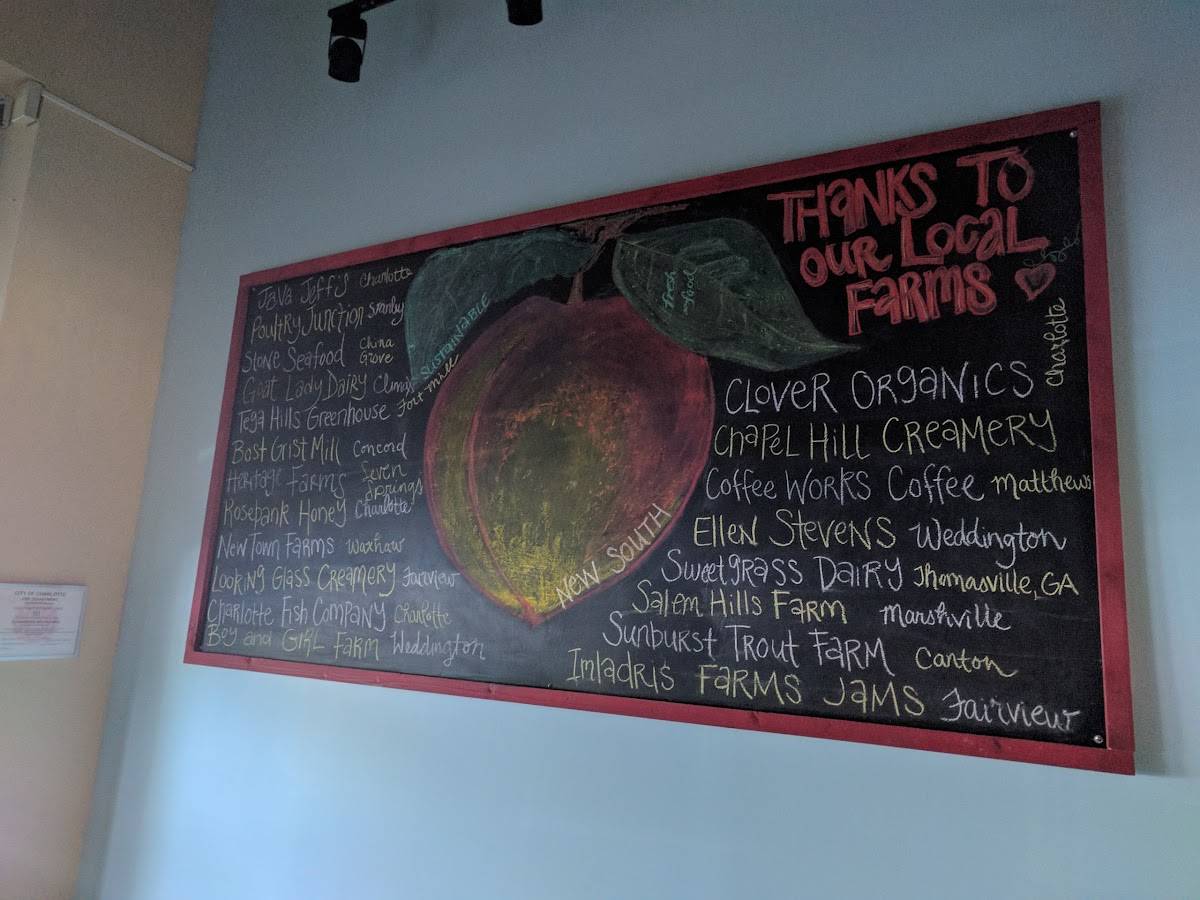 THANKS TO
OUR LOCAL
FARMS
SUSTAINABLE
fresh
food
NEW SOUTH
Java Jeff's Charlotte
Poultry Junction Stanly
Stone Seafood China Grove
Goat Lady Dairy Climax
Tega Hills Greenhouse Fort Mill
Bost Grist Mill Concord
Heritage Farms Seven Springs
Rosebank Honey Charlotte
New Town Farms Waxhaw
Looking Glass Creamery Fairview
Charlotte Fish Company Charlotte
Boy and Girl Farm Weddington
Clover Organics Charlotte
Chapel Hill Creamery
Coffee Works Coffee Matthews
Ellen Stevens Weddington
Sweetgrass Dairy Thomasville, GA
Salem Hills Farm Marshville
Sunburst Trout Farm Canton
Imladris Farms Jams Fairview
CITY OF CHARLOTTE